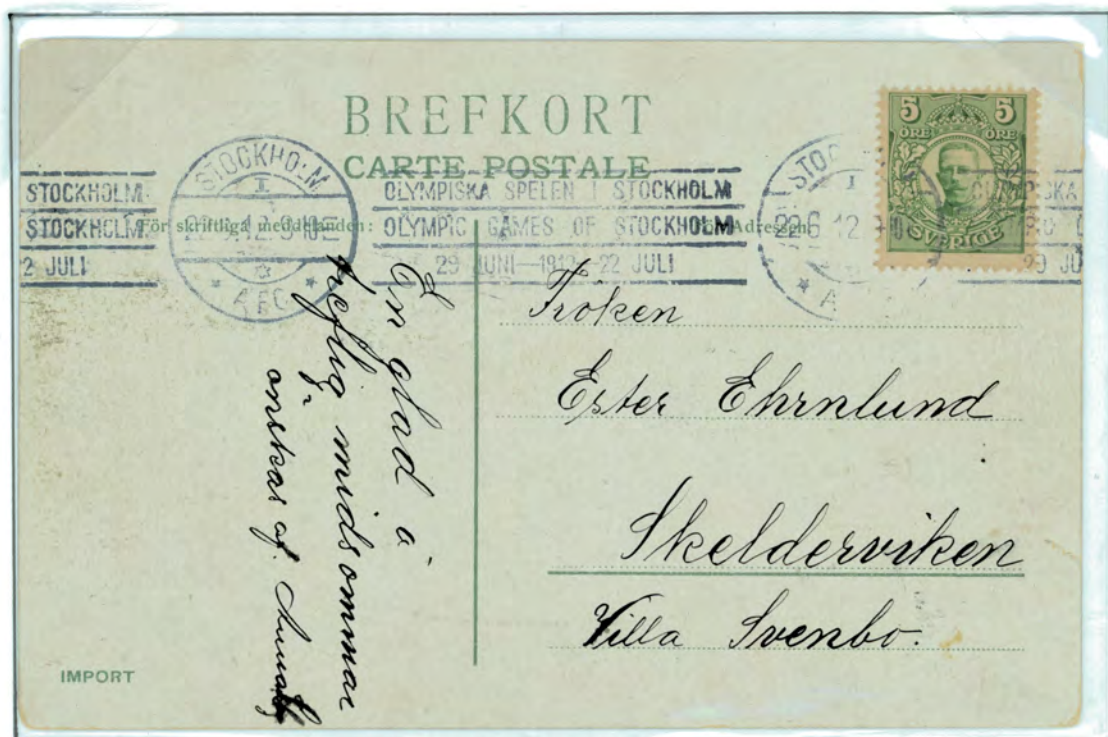 BREFKORT
CARTE POSTALE
5 5
ÖRE ÖRE
SVERIGE
STOCKHOLM
STOCKHOLM
2 JULI
STOCKHOLM
1
AFG
OLYMPISKA SPELEN I STOCKHOLM
OLYMPIC GAMES OF STOCKHOLM
29 JUNI—1912—22 JULI
22 6 12
För skriftliga meddelanden:
För Adressen
En glad å
treflig midsommar
önskas af
Fröken
Ester Ehrnlund
Skelderviken
Villa Svenbo.
IMPORT